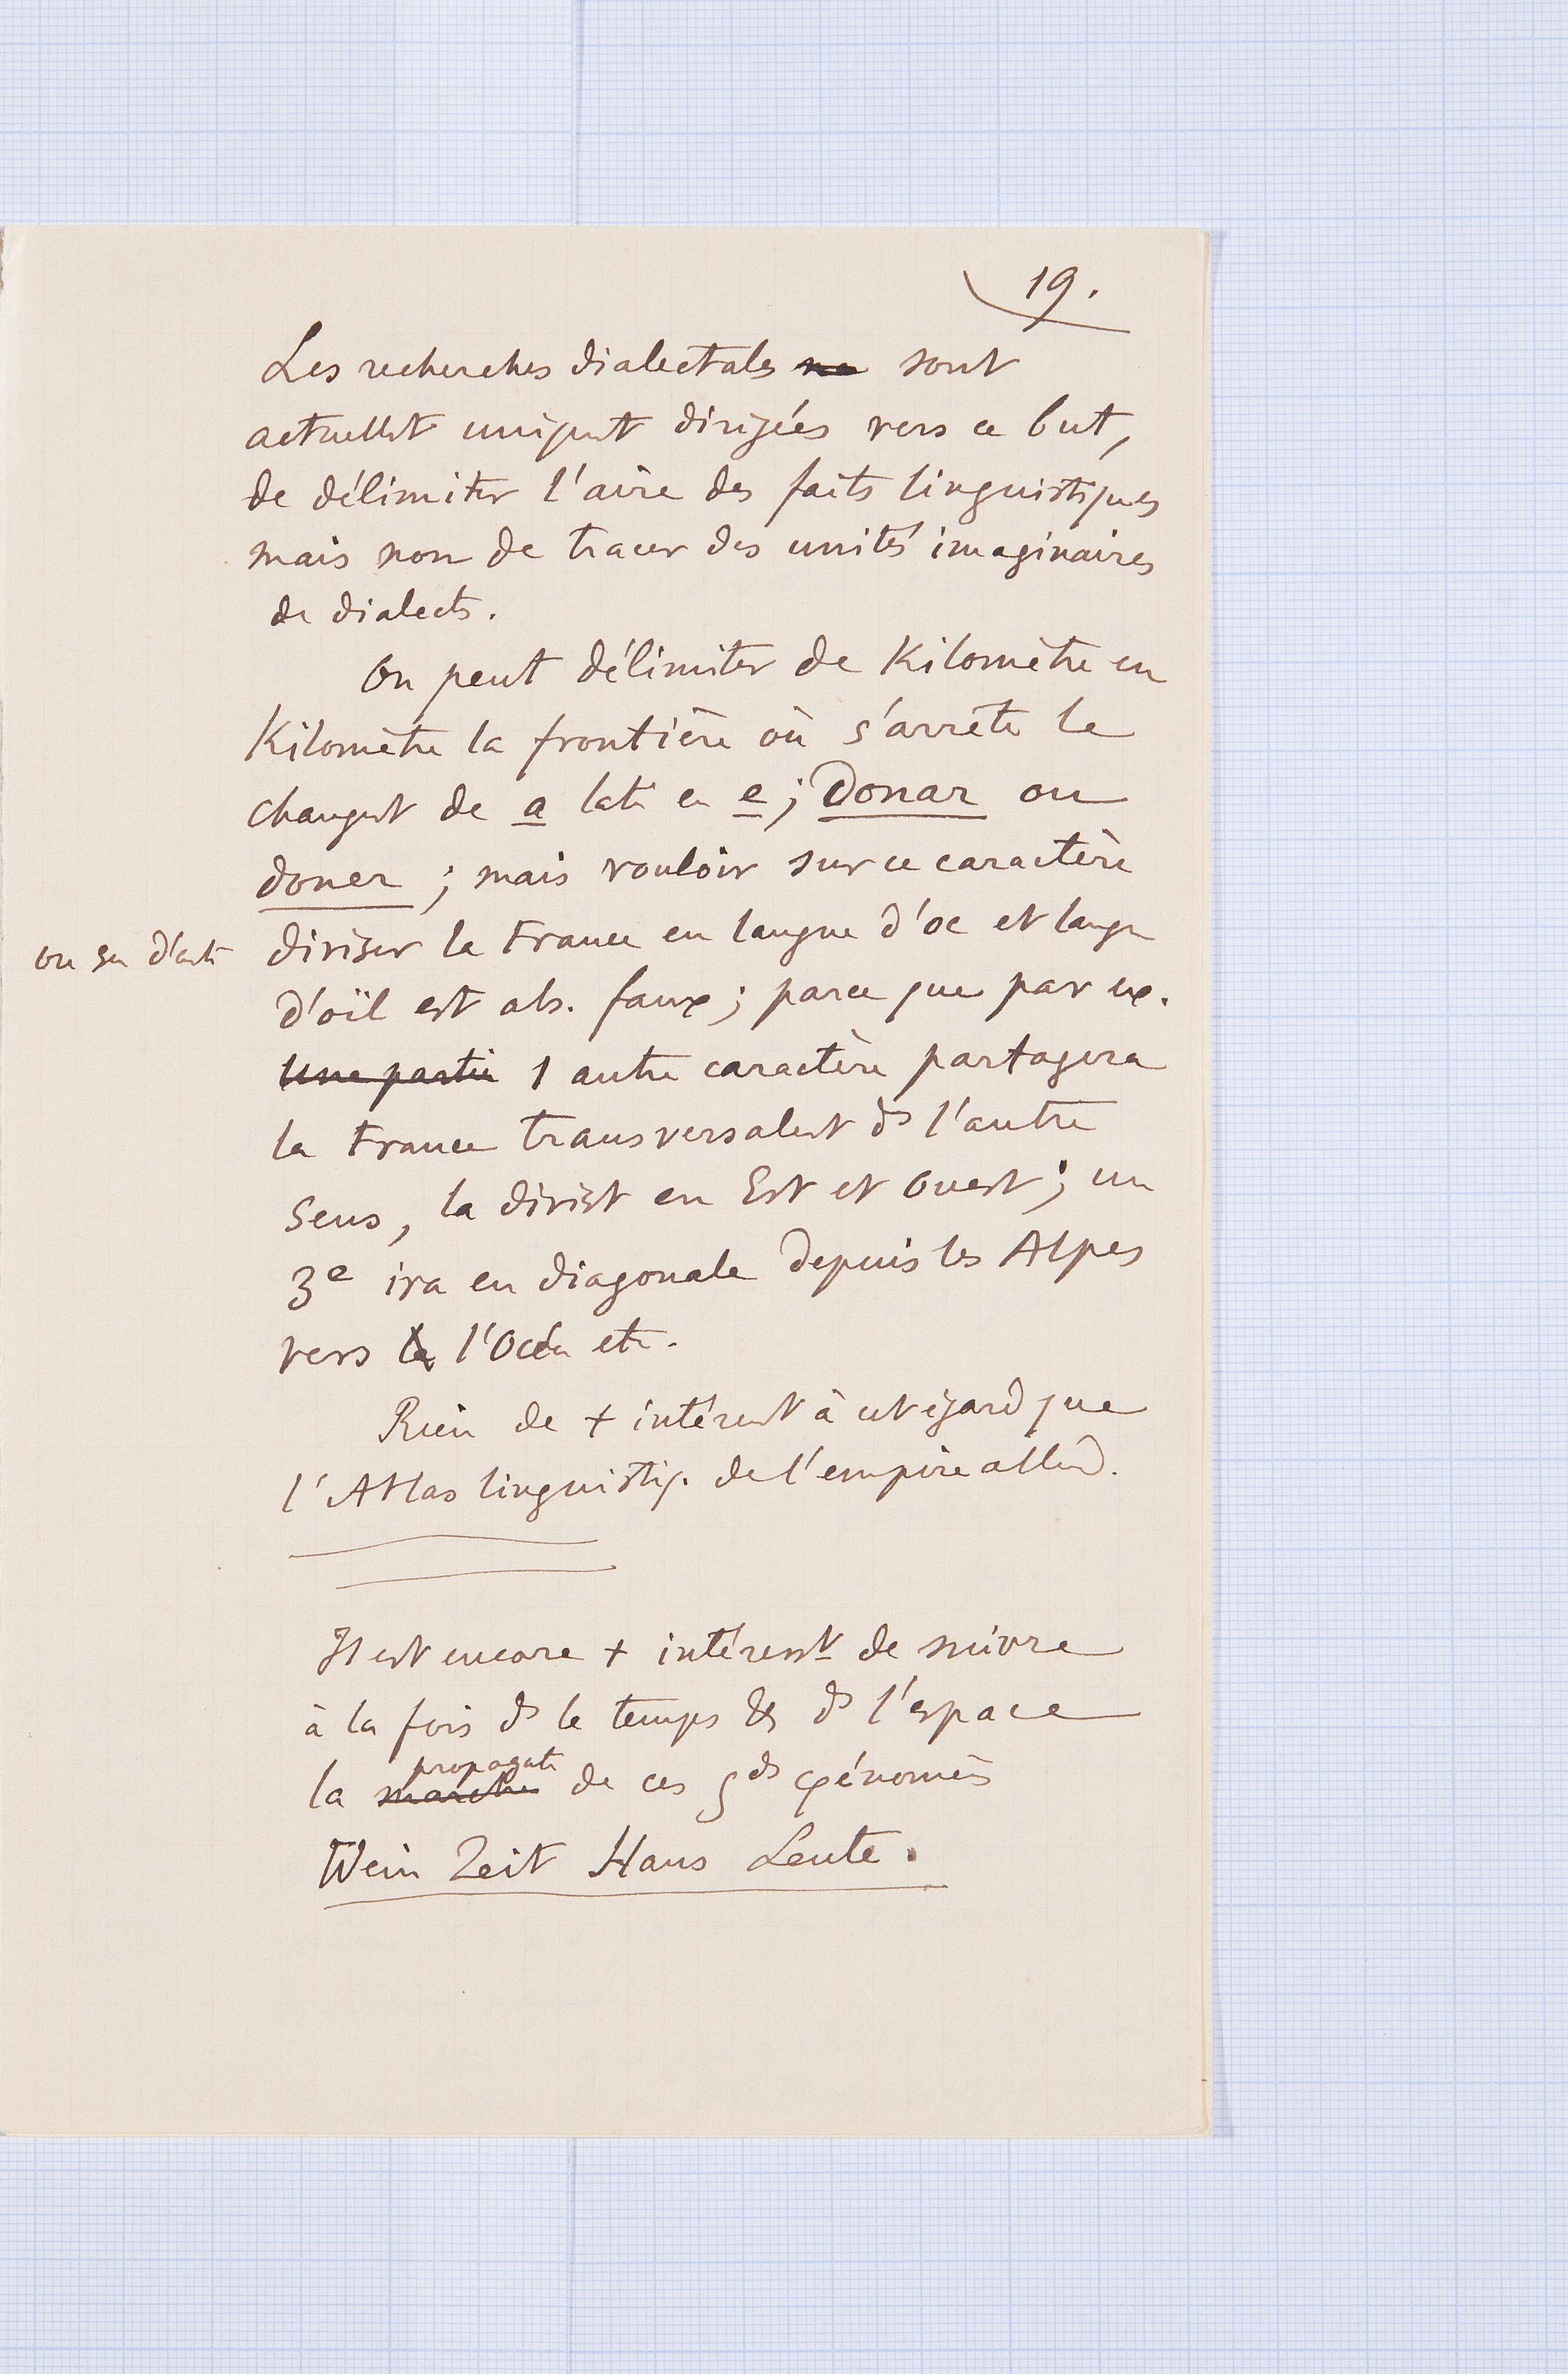 19.
Les recherches dialectales ne sont
actuellt uniqut dirigées vers ce but,
de délimiter l'aire des faits linguistiques
mais non de tracer des unités imaginaires
de dialects.
On peut délimiter de Kilomètre en
Kilomètre la frontière où s'arrête le
changent de a lati en e ; Donar ou
doner ; mais vouloir sur ce caractère
ou sur d'aut
diviser la France en langue d'oc et langu
d'oïl est abs. faux ; parce que par ex.
Une partie 1 autre caractère partagera
la France transversalent ds l'autre
sens, la divist en Est et Ouest ; un
3e ira en diagonale depuis les Alpes
vers le l'Océa etc.
Rien de + intérent à cet égard que
l'Atlas linguistiq. de l'empire allnd.
Il est encore + intéresst de suivre
à la fois ds le temps & ds l'espace
propagati
la marche de ces gds φénomès
Wein Zeit Haus Leute.